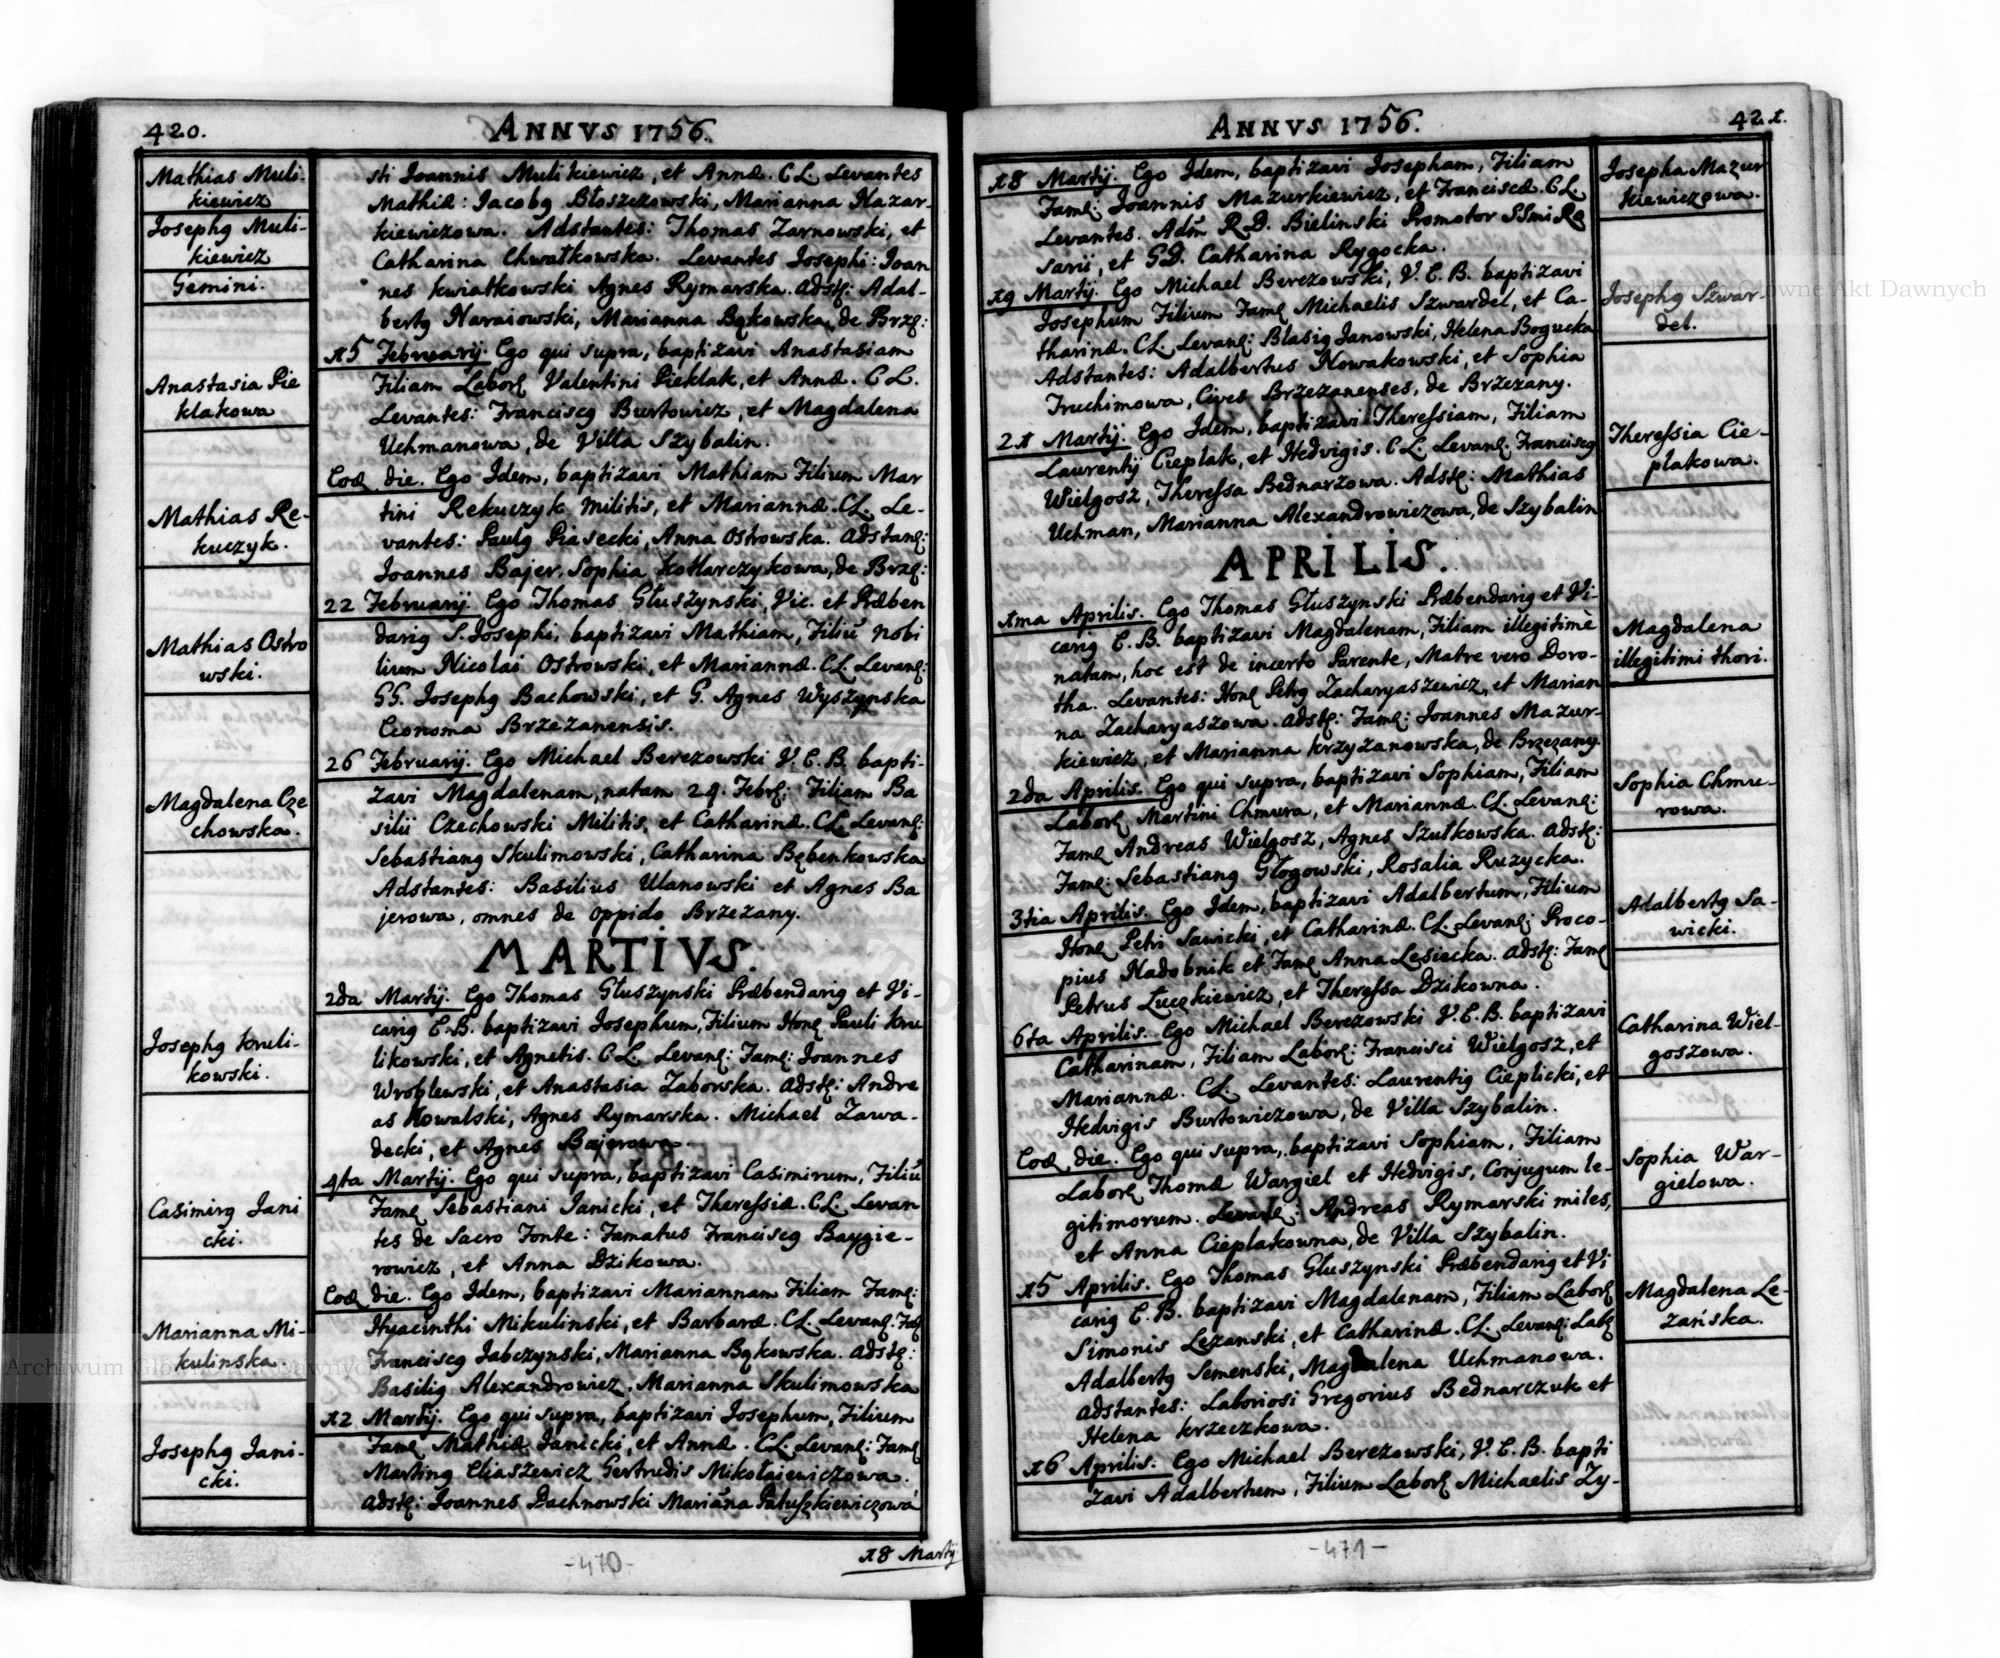 420.
ANNVS 1756.
Mathias Muli-
kiewicz
Josephq Muli-
kiewicz
Gemini.
Anastasia Pie
klakowa
Mathias Re-
kuczyk.
Mathias Ostro
wski.
Magdalena Cze
chowska.
Josephq Kruli-
kowski.
Casimirq Jani
cki.
Marianna Mi-
kulinska.
Josephq Jani-
cki.
sti Joannis Mulikiewicz, et Annæ. C L. Levantes
Mathiæ: Jacobq Błoszczowski, Marianna Nazar-
kiewiczowa. Adstantes: Thomas Zarnowski, et
Catharina Chwałkowska. Levantes Josephi: Joan
nes Kwiatkowski Agnes Rymarska. Adstę: Adal-
bertq Naraiowski, Marianna Bąkowska, de Brzę:
15 Februarij. Ego qui supra, baptizavi Anastasiam
Filiam Laborę Valentini Pieklak, et Annæ. C L.
Levantes: Franciscq Burtowicz, et Magdalena
Uchmanowa, de Villa Szybalin.
Eodę die. Ego Idem, baptizavi Mathiam Filium Mar
tini Rekuczyk militis, et Mariannæ. CL. Le-
vantes: Paulq Piasecki, Anna Ostrowska. Adstanę:
Joannes Bajer, Sophia Kotlarczykowa, de Brzę:
22 Februarij. Ego Thomas Głuszynski, Vic. et Præben
darię S. Josephi, baptizavi Mathiam, Filiũ nobi
lium Nicolai Ostrowski, et Mariannæ. CL. Levanę:
GG. Josephq Bachowski, et G. Agnes Wyszynska
Ceonoma Brzezanensis.
26 Februarij. Ego Michael Berezowski V. E. B. bapti-
zavi Magdalenam, natam 24. Febrę: Filiam Ba
silii Czechowski Militis, et Catharinæ. CL Levanę:
Sebastianq Skulimowski, Catharina Bębenkowska
Adstantes: Basilius Ulanowski et Agnes Ba
jerowa, omnes de oppido Brzezany.
MARTIVS.
2da Martij. Ego Thomas Głuszynski Præbendarię et Vi-
carię E.B. baptizavi Josephum, Filium Honę Pauli Kru
likowski, et Agnetis. C L. Levanę: Famę: Joannes
Wroblewski, et Anastasia Zaborska. Adstę: Andre
as Kowalski, Agnes Rymarska. Michael Zawa-
decki, et Agnes Bajerowa.
4ta Martij. Ego qui supra, baptizavi Casimirum, Filiũ
Famę Sebastiani Janicki, et Theressiæ. CL. Levan
tes de Sacro Fonte: Famatus Franciscq Baygie-
rowicz, et Anna Dzikowa.
Eodę die. Ego Idem, baptizavi Mariannam Filiam Famę:
Hyacinthi Mikulinski, et Barbaræ. CL. Levanę:
Franciscq Jabczynski, Marianna Bąkowska. Adstę:
Basiliq Alexandrowicz, Marianna Skulimowska
12 Martij. Ego qui supra, baptizavi Josephum, Filium
Famę Mathiæ Janicki, et Annæ. CL. Levanę: Famę
Martinq Eliaszewicz Gertrudis Mikołaiewiczowa.
Adstę: Joannes Dachnowski Mariãna Patuszkiewiczowa
18 Martij
-470-
ANNVS 1756.
421.
18 Martij. Ego Idem, baptizavi Josepham, Filiam
Famę: Joannis Mazurkiewicz, et Franciscæ. CL.
Levantes. Adm̃ R. D. Bielinski Promotor SSmi Ro
sarii, et GD. Catharina Rygocka.
19 Martij. Ego Michael Berezowski, V. E. B. baptizavi
Josephum Filium Famę Michaelis Szwardel, et Ca-
tharinæ. CL. Levanę: Blasiq Janowski, Helena Bogucka
Adstantes: Adalbertus Nowakowski, et Sophia
Truchimowa, Cives Brzezanenses, de Brzezany.
21 Martij. Ego Idem, baptizavi Theressiam, Filiam
Laurentij Cieplak, et Hedvigis. C L. Levanę: Franciscq
Wielgosz, Theressa Bednarzowa. Adstę: Mathias
Uchman, Marianna Alexandrowiczowa, de Szybalin
APRILIS.
1ma Aprilis. Ego Thomas Głuszynski Præbendarię et Vi-
carię E. B. baptizavi Magdalenam, Filiam illegitimè
natam, hoc est de incerto Parente, Matre vero Doro-
tha. Levantes: Honę Petrq Zacharyaszewicz, et Marian
na Zacharyaszowa. Adstę: Famę: Joannes Mazur-
kiewicz, et Marianna Krzyzanowska, de Brzezany.
2da Aprilis. Ego qui supra, baptizavi Sophiam, Filiam
Laborę Martini Chmura, et Mariannæ. CL. Levanę:
Famę Andreas Wielgosz, Agnes Szutkowska. Adstę:
Famę: Sebastianq Głogowski, Rosalia Ruzycka.
3tia Aprilis. Ego Idem, baptizavi Adalbertum, Filium
Honę Petri Sawicki, et Catharinæ. CL. Levanę: Proco-
pius Nadobnik et Famę Anna Lesiecka. Adstę: Famę
Petrus Łuczkiewicz, et Theressa Dzikowna.
6ta Aprilis. Ego Michael Berezowski V. E. B. baptizavi
Catharinam, Filiam Laborę: Francisci Wielgosz, et
Mariannæ. CL. Levantes: Laurentiq Cieplicki, et
Hedvigis Burtowiczowa, de Villa Szybalin.
Eodę die. Ego qui supra, baptizavi Sophiam, Filiam
Laborę Thomæ Wargiel et Hedvigis, Conjugum le-
gitimorum. Levanę: Andreas Rymarski miles,
et Anna Cieplakowna, de Villa Szybalin.
15 Aprilis. Ego Thomas Głuszynski Præbendarię et Vi
carię E. B. baptizavi Magdalenam, Filiam Laborę
Simonis Lezanski, et Catharinæ. CL. Levanę: Labę
Adalbertq Semenski, Magdalena Uchmanowa.
Adstantes: Laboriosi Gregorius Bednarczuk et
Helena Krzeczkowa.
16 Aprilis. Ego Michael Berezowski, V. E. B. bapti
zavi Adalbertum, Filium Laborę Michaelis Zy-
Josepha Mazur
kiewiczowa.
Josephq Szwar-
del.
Theressia Cie-
plakowa.
Magdalena
illegitimi thori.
Sophia Chmu-
rowa.
Adalbertq Sa-
wicki.
Catharina Wiel-
goszowa.
Sophia War-
gielowa.
Magdalena Le-
zańska.
-471-
Archiwum Główne Akt Dawnych
Archiwum Główne Akt Dawnych